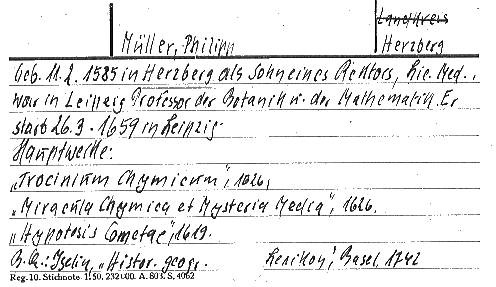 Landkreis
Müller, Philipp Herzberg
geb. 11.2. 1585 in Herzberg als Sohn eines Rektors, Lic. Med.,
war in Leipzig Professor der Botanik u. der Mathematik. Er
starb 26.3.1659 in Leipzig.
Hauptwerke:
„Tyrocinium Chymicum", 1626,
„Miracula Chymica et Mysteria Medica", 1626.
„Hypotesis Cometae", 1619.
B.Qu.: Iselin, „Histor. geogr. Lexikon", Basel, 1742
Reg. 10. Stichnote. 11.50. 232000. A. 803. S. 4062